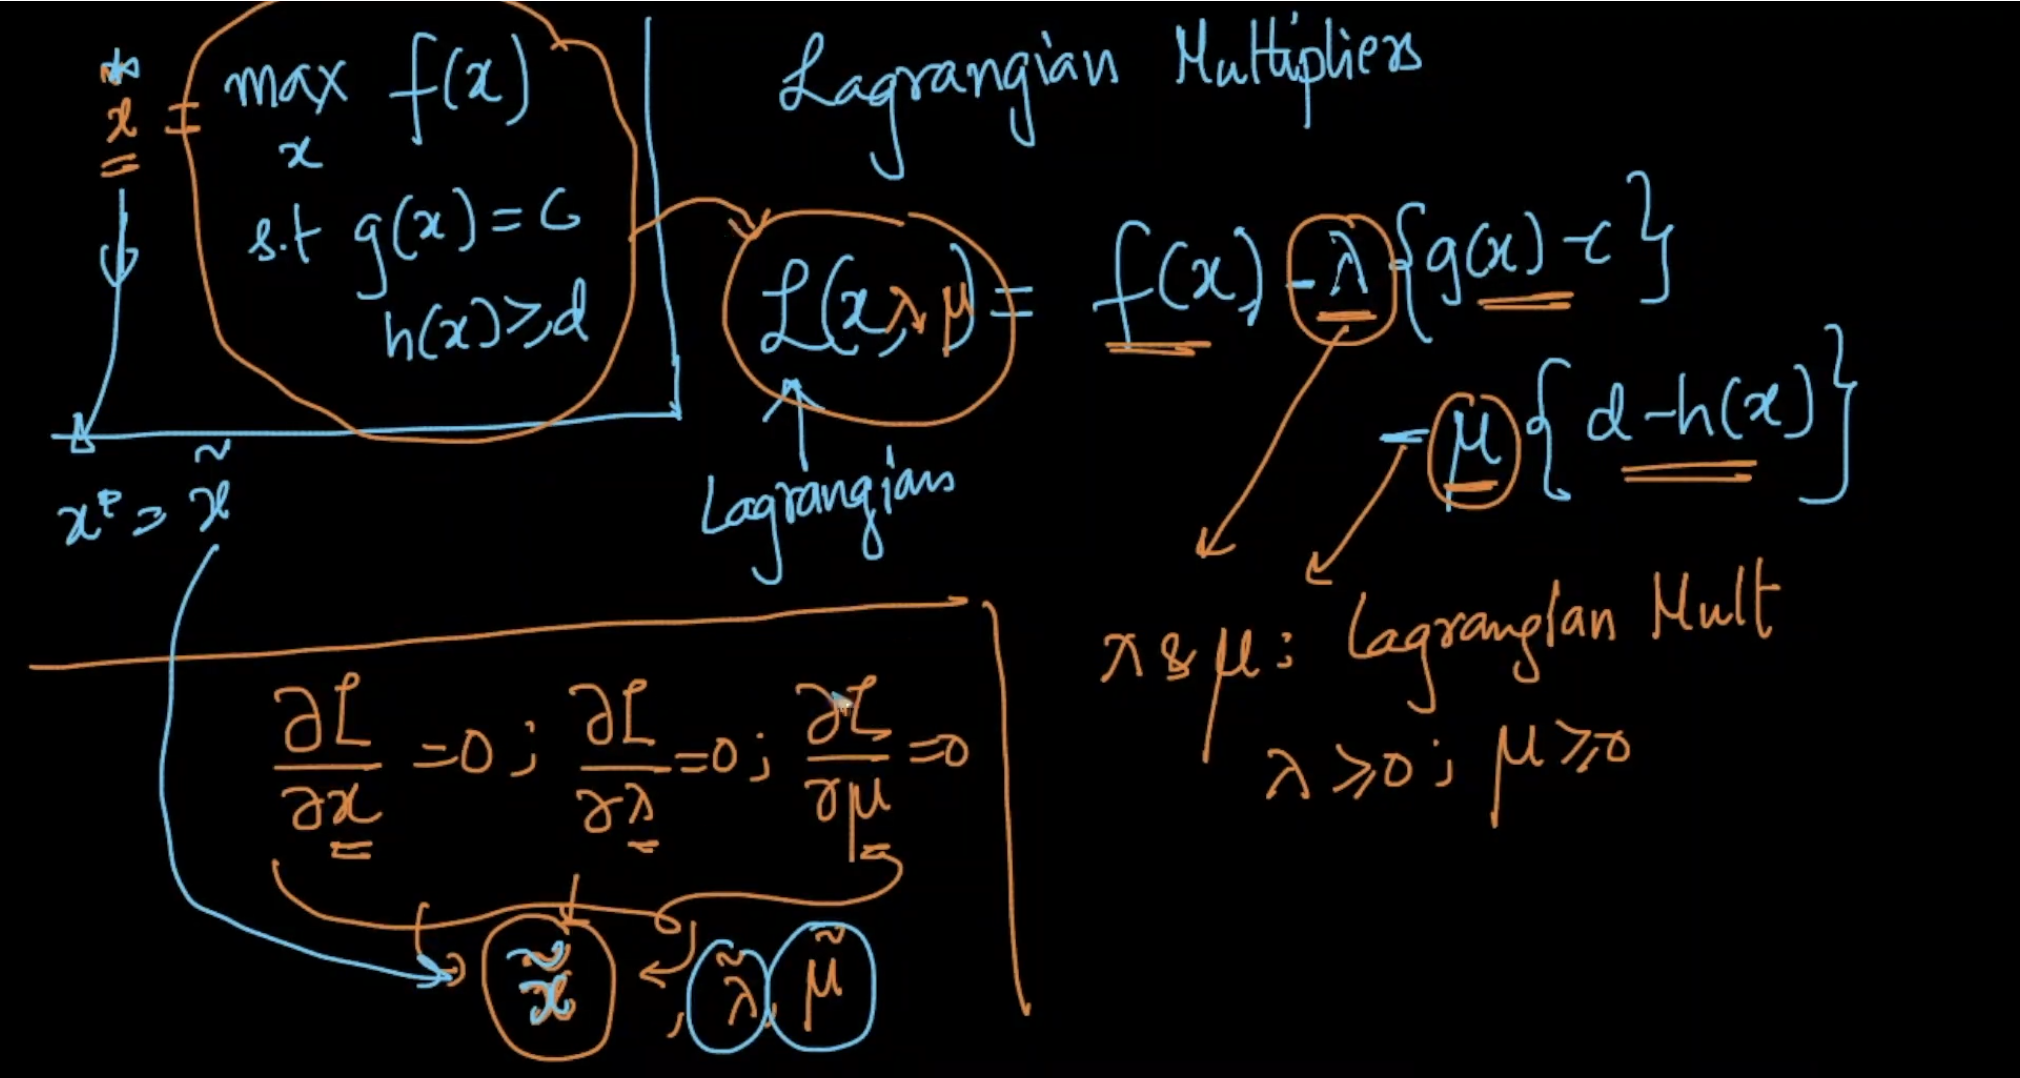 x* = max f(x)
x
s.t g(x) = c
h(x) ≥ d
x* = x̃
Lagrangian Multipliers
L(x, λ, μ) = f(x) - λ{g(x) - c}
- μ{d - h(x)}
Lagrangian
λ & μ : Lagrangian Mult
λ ≥ 0 ; μ ≥ 0
∂L/∂x = 0 ; ∂L/∂λ = 0 ; ∂L/∂μ = 0
x̃ , λ̃, μ̃